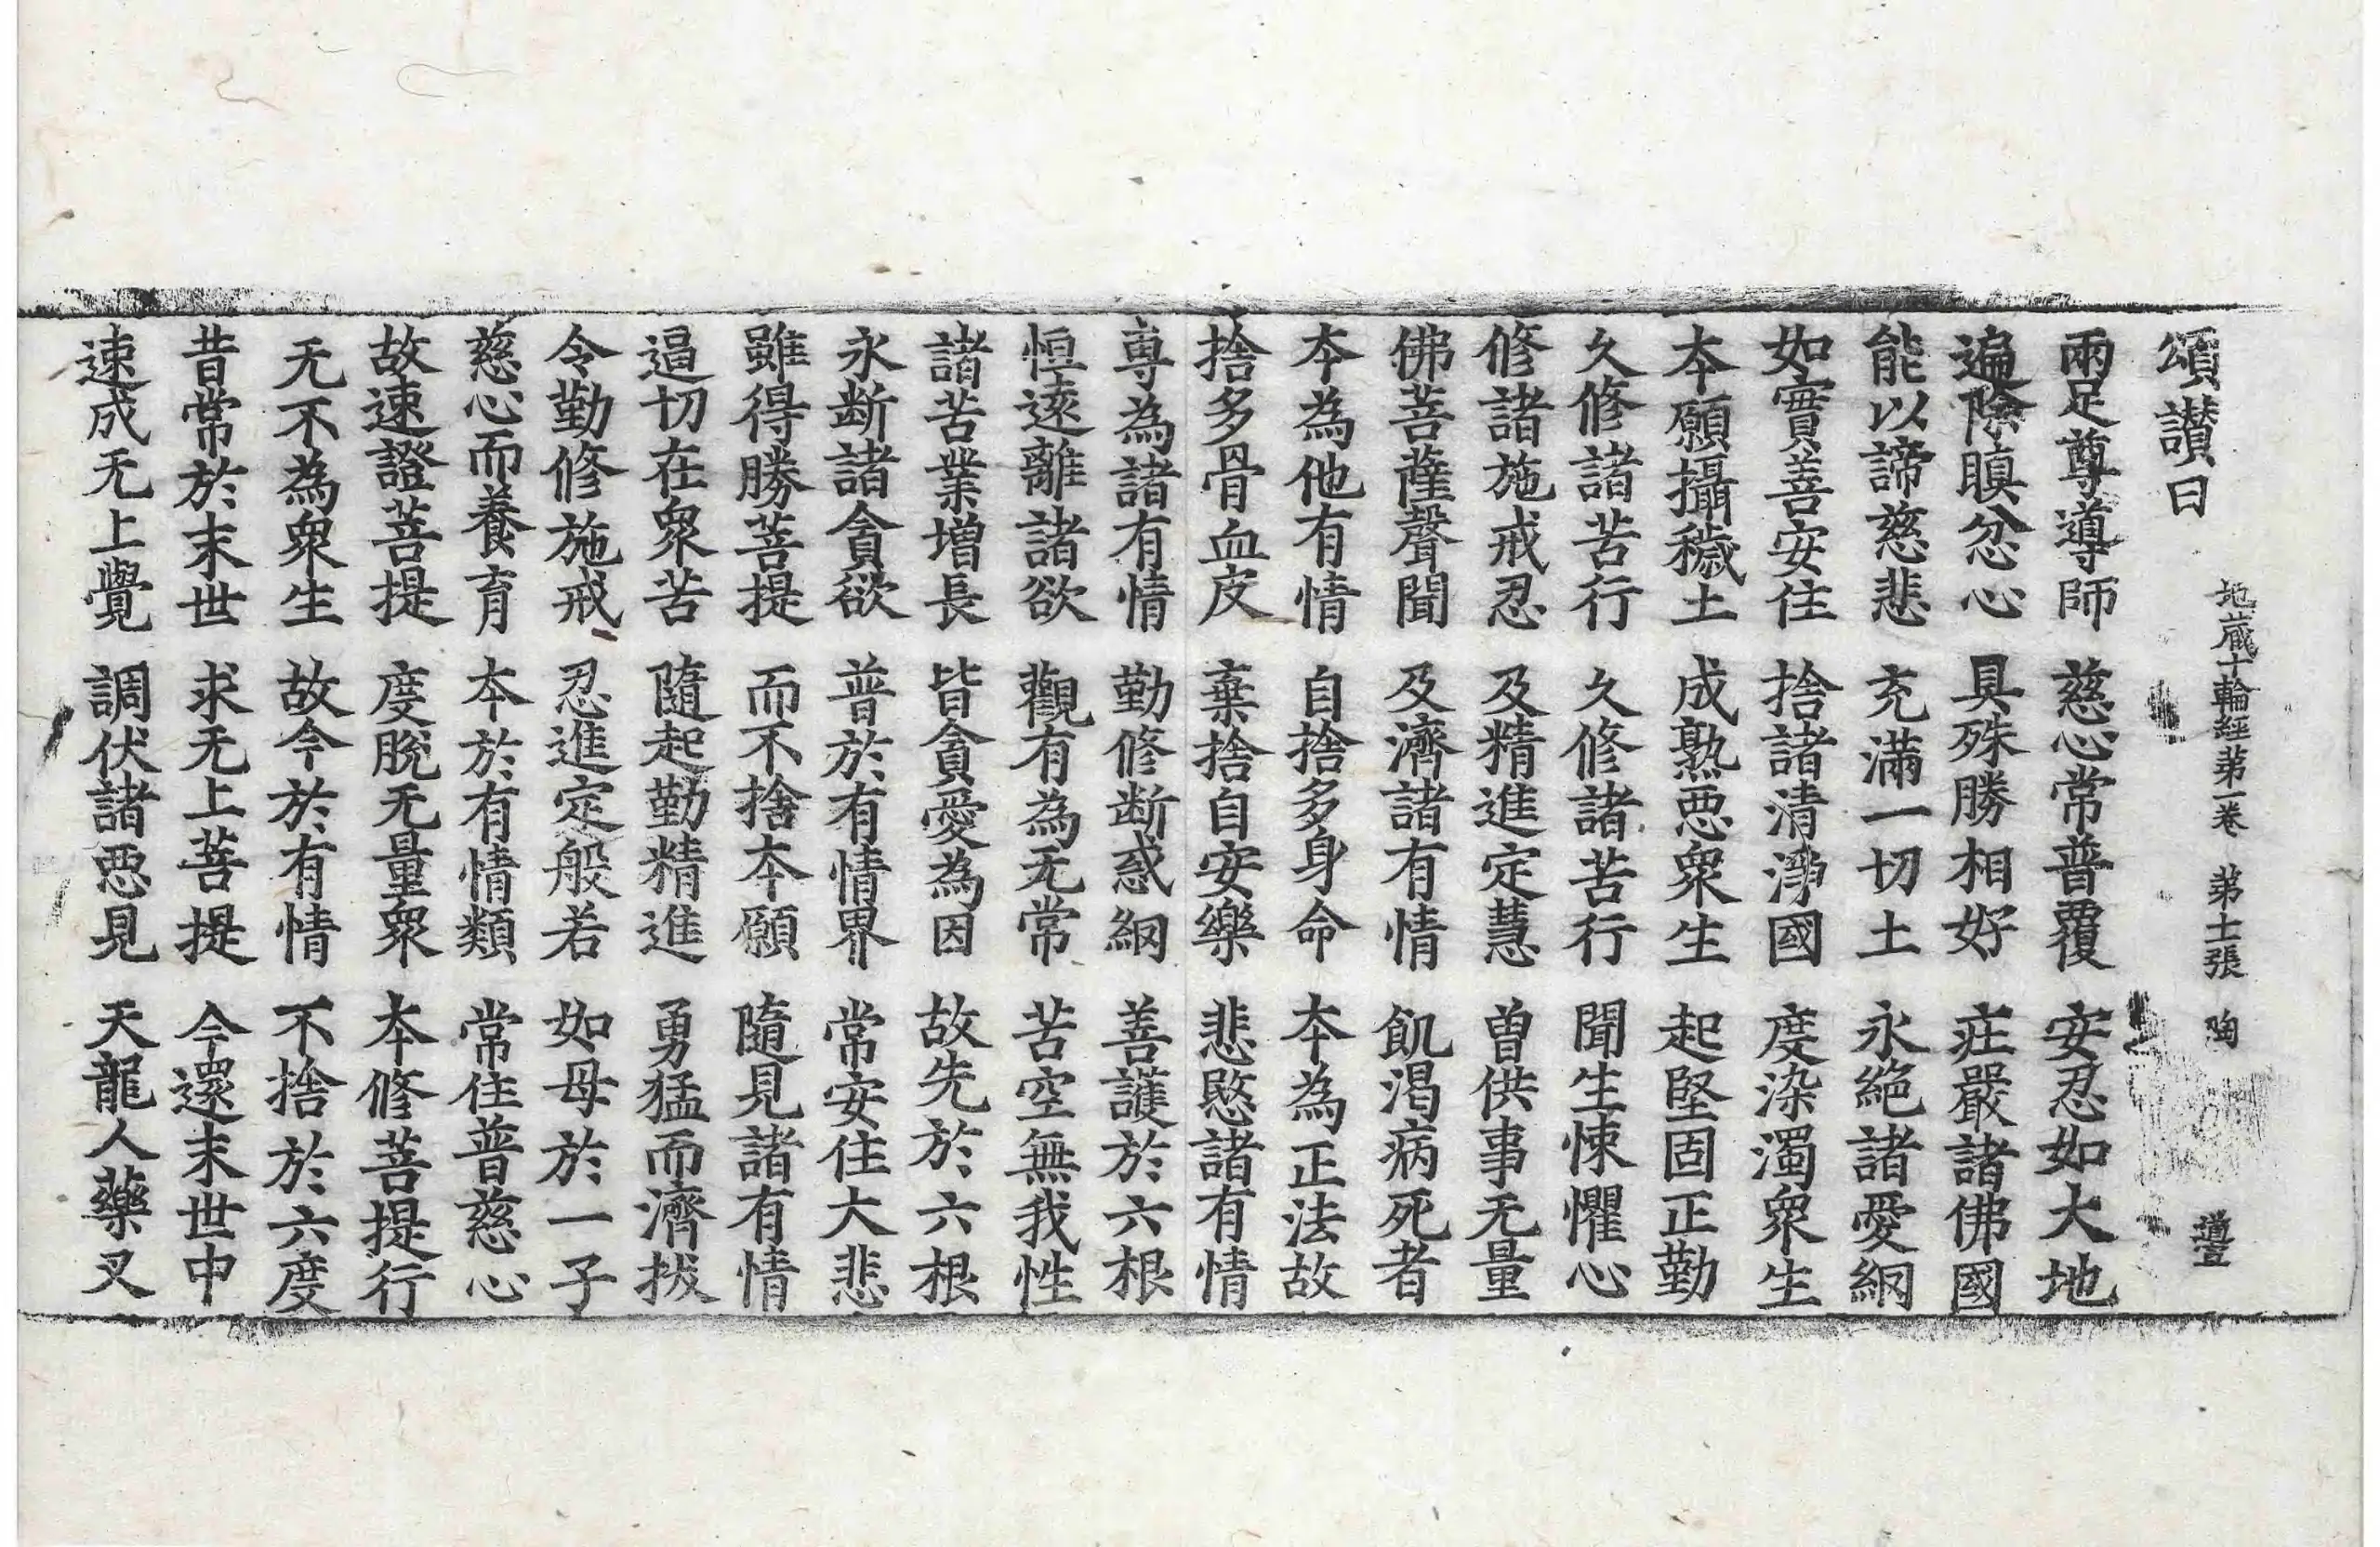 地藏十輪經第一卷 第十二張 陶 遵
頌讃曰
兩足尊導師 慈心常普覆 安忍如大地
遍除瞋忿心 具殊勝相好 莊嚴諸佛國
能以諦慈悲 充滿一切土 永絕諸愛網
如實善安住 捨諸清淨國 度染濁衆生
本願攝穢土 成熟惡衆生 起堅固正勤
久修諸苦行 久修諸苦行 聞生悚懼心
修諸施戒忍 及精進定慧 曾供事无量
佛菩薩聲聞 及濟諸有情 飢渴病死者
本為他有情 自捨多身命 本為正法故
捨多骨血皮 棄捨自安樂 悲愍諸有情
專為諸有情 勤修断惑網 善護於六根
恒遠離諸欲 觀有為无常 苦空無我性
諸苦業增長 皆貪愛為因 故先於六根
永断諸貪欲 普於有情界 常安住大悲
雖得勝菩提 而不捨本願 隨見諸有情
逼切在衆苦 隨起勤精進 勇猛而濟拔
令勤修施戒 忍進定般若 如母於一子
慈心而養育 本於有情類 常住普慈心
故速證菩提 度脫无量衆 本修菩提行
无不為衆生 故今於有情 不捨於六度
昔常於末世 求无上菩提 今還末世中
速成无上覺 調伏諸惡見 天龍人藥叉